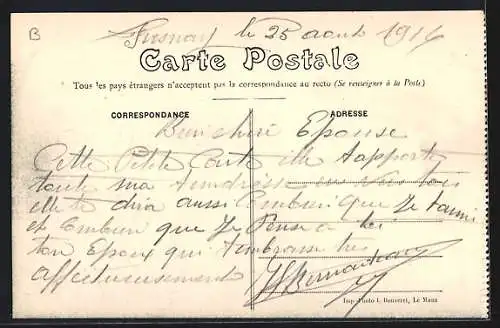 B
Fresnay le 25 août 1914
Carte Postale
Tous les pays étrangers n'acceptent pas la correspondance au recto (Se renseigner à la Poste)
CORRESPONDANCE
ADRESSE
Bien chéri Epouse
Cette Petite Carte ille tapporte
toute ma tendresse
elle te dira aussi combien que Je taime
et Combien que Je Pense a toi
ton Epoux qui tembrasse tres
affectueusement
Imp.-Photo J. Bouveret, Le Mans